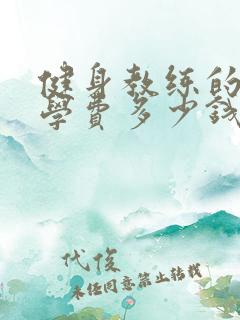 健身教练的
學費多少钱
代俊
未经同意禁止转载